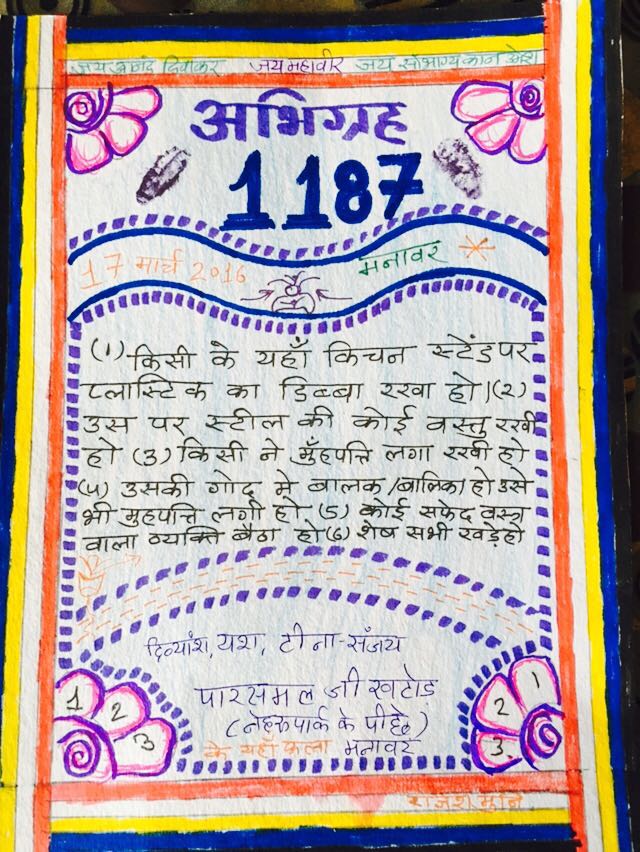 जय आनंद दिवाकर जय महावीर जय सोभाग्य कान उमेश
अभिग्रह
1187
17 मार्च 2016 मनावर
(1) किसी के यहाँ किचन स्टेंड पर
प्लास्टिक का डिब्बा रखा हो।(2)
उस पर स्टील की कोई वस्तु रखी
हो (3) किसी ने मुँहपत्ति लगा रखी हो
(4) उसकी गोद मे बालक/बालिका हो उसे
भी मुहपत्ति लगी हो (5) कोई सफेद वस्त्र
वाला व्यक्ति बैठा हो (6) शेष सभी खड़े हो
दिव्यांश, यश, टीना-संजय
पारसमल जी खटोड़
(नेहरू पार्क के पीछे)
के यहाँ फला मनावर
1 2 3
1 2 3
राजेश मुनि